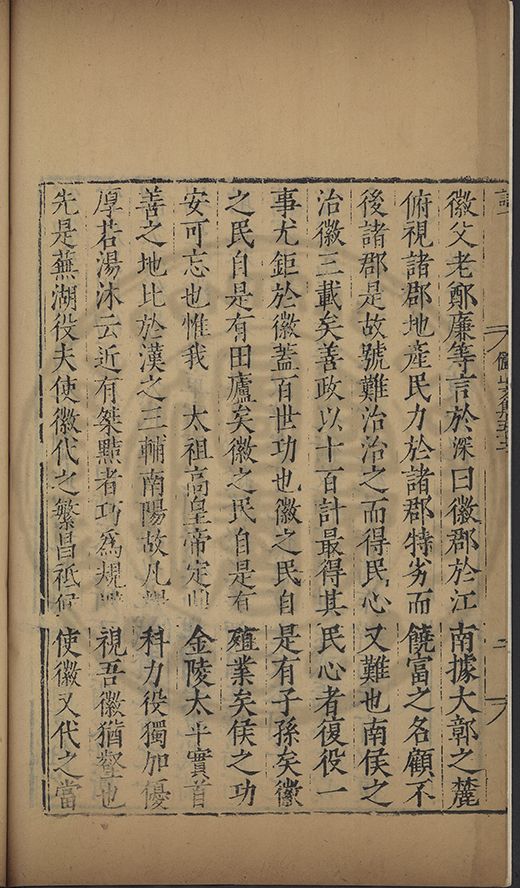 徽父老鄭廉等言於深曰徽郡於江南據大鄣之麓
俯視諸郡地產民力於諸郡特劣而饒富之名顧不
後諸郡是故號難治治之而得民心又難也南侯之
治徽三載矣善政以十百計最得其民心者復役一
事尤鉅於徽蓋百世功也徽之民自是有子孫矣徽
之民自是有田廬矣徽之民自是有業矣侯之功
安可忘也惟我　太祖高皇帝定鼎金陵太平實首
善之地比於漢之三輔南陽故凡糧科力役獨加優
厚若湯沐云近有桀黠者巧為規視吾徽猶壑也
先是蕪湖役夫使徽代之繁昌祗候使徽又代之當